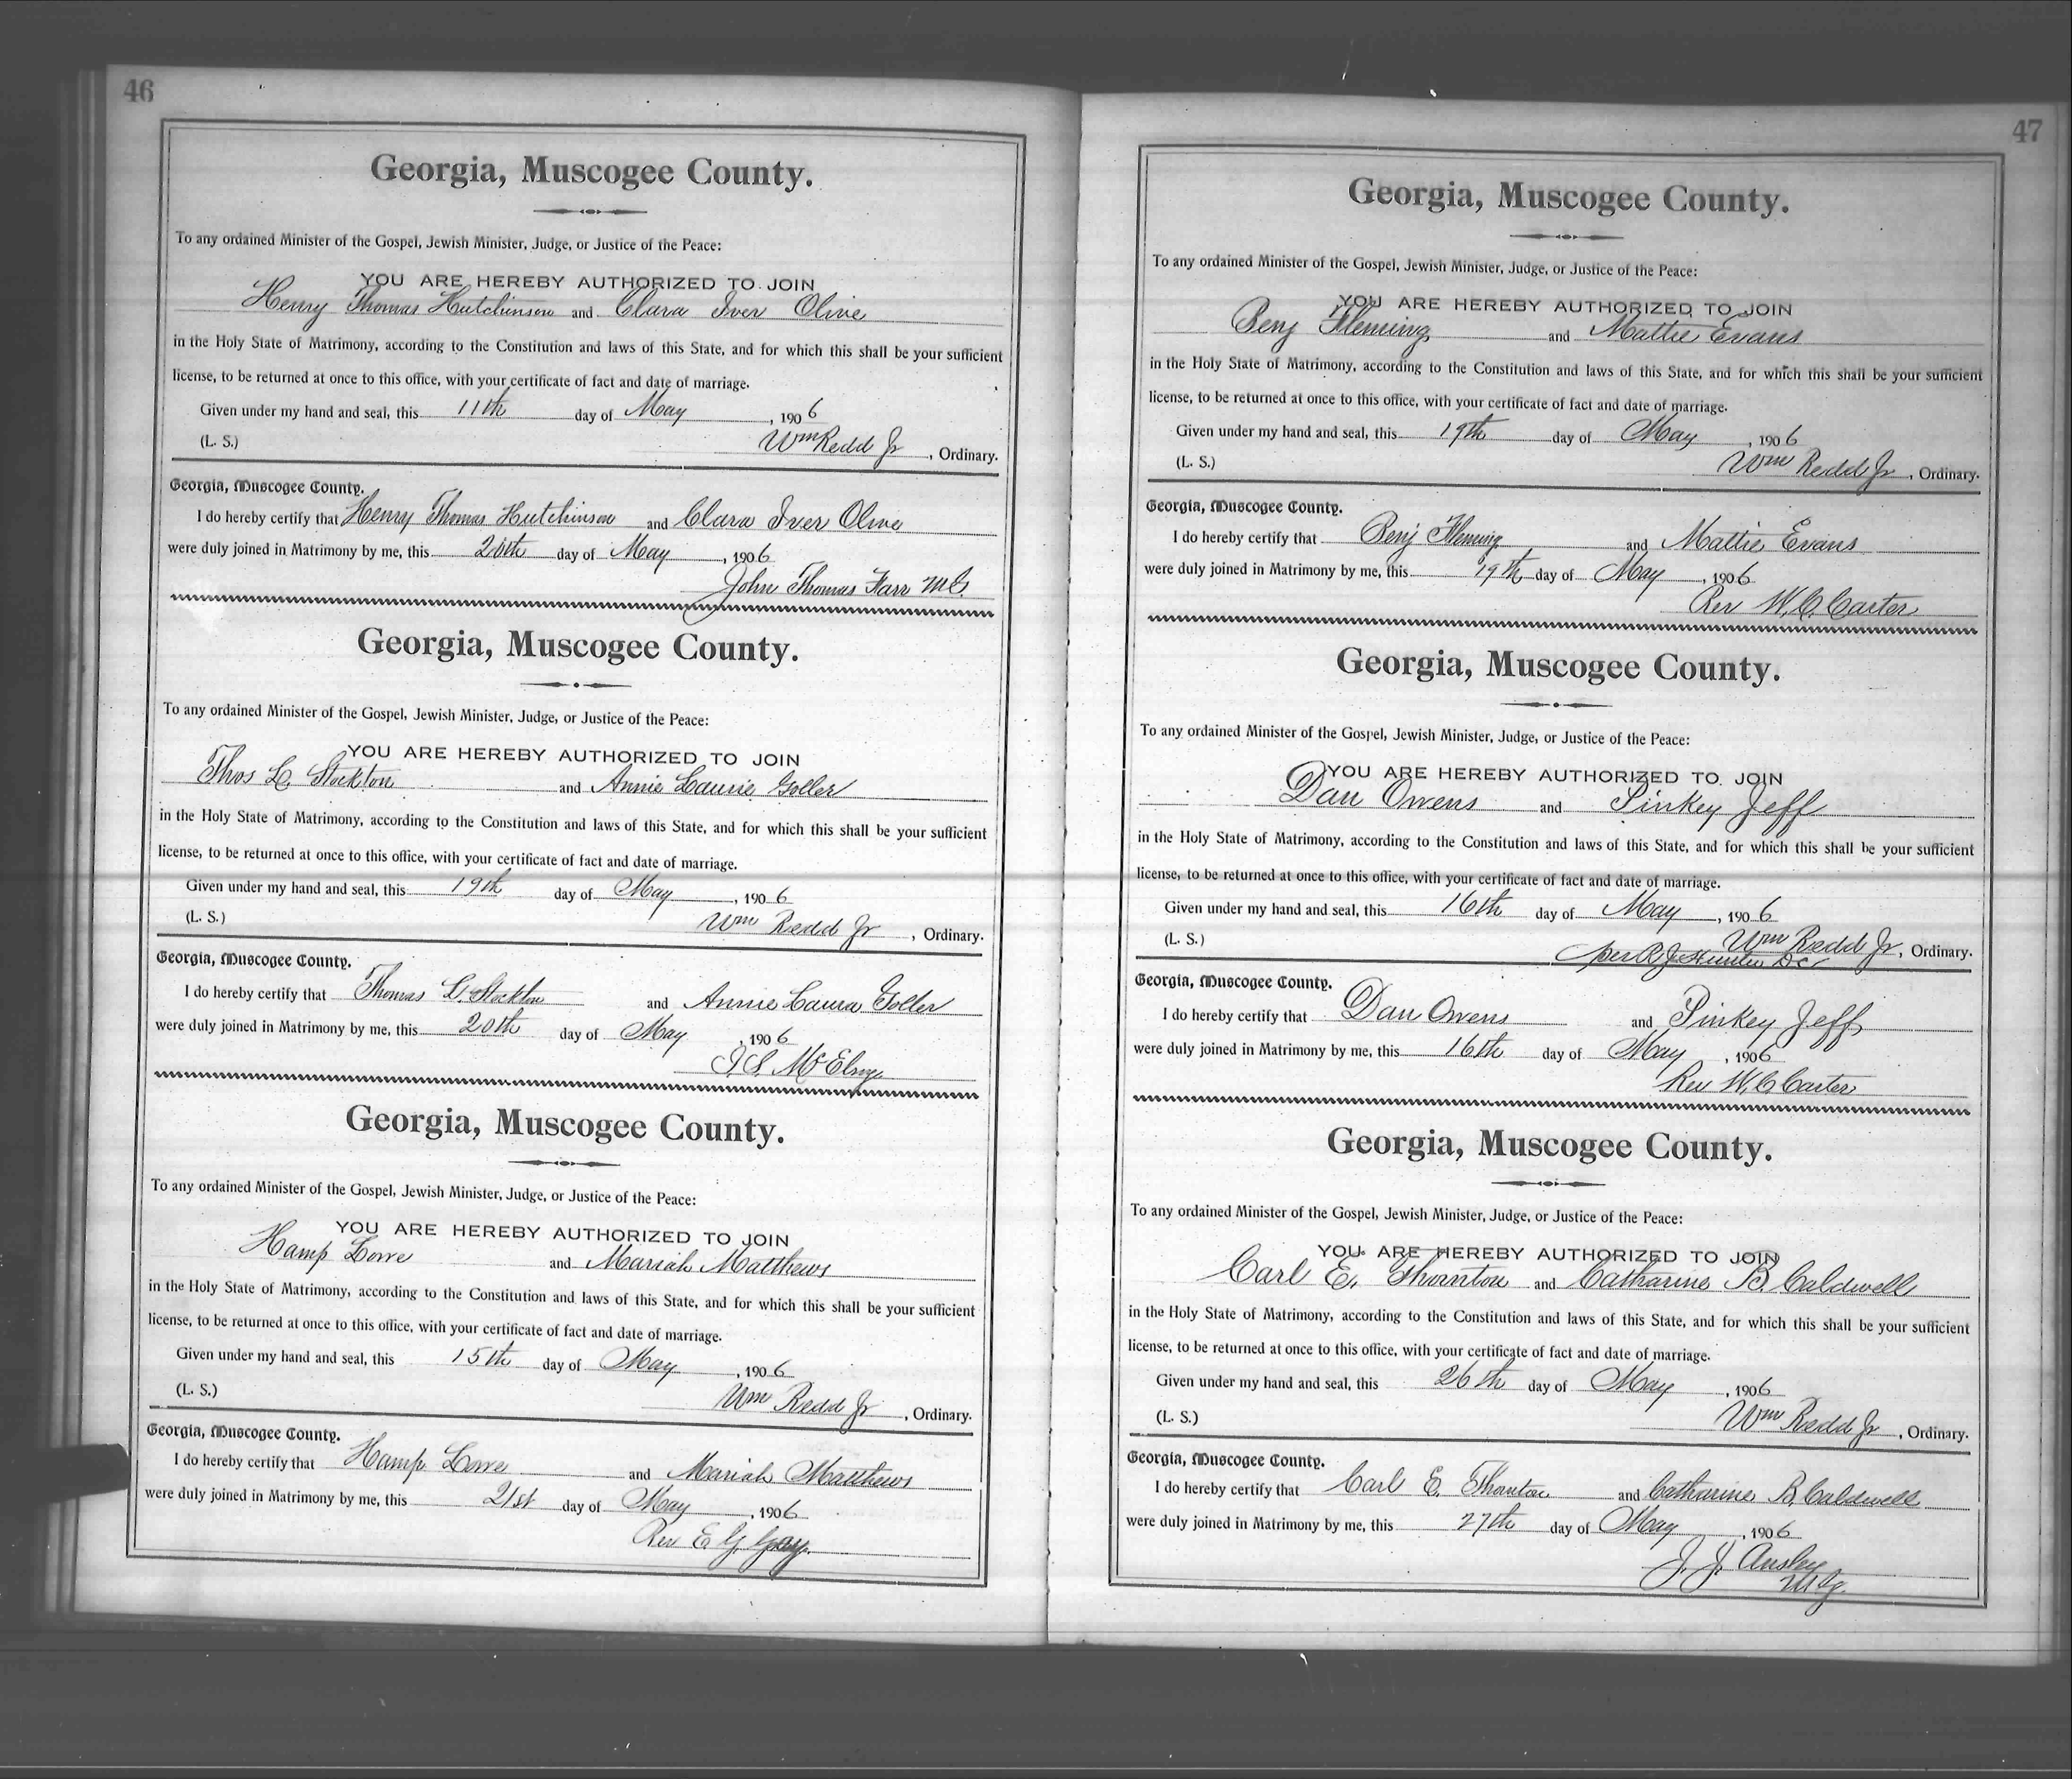 46
Georgia, Muscogee County.
To any ordained Minister of the Gospel, Jewish Minister, Judge, or Justice of the Peace:
YOU ARE HEREBY AUTHORIZED TO JOIN
Henry Thomas Hutchinson and Clara Iver Olive
in the Holy State of Matrimony, according to the Constitution and laws of this State, and for which this shall be your sufficient
license, to be returned at once to this office, with your certificate of fact and date of marriage.
Given under my hand and seal, this 11th day of May, 1906
(L. S.) Wm Redd Jr, Ordinary.
Georgia, Muscogee County.
I do hereby certify that Henry Thomas Hutchinson and Clara Iver Olive
were duly joined in Matrimony by me, this 20th day of May, 1906
John Thomas Farr M.G.
Georgia, Muscogee County.
To any ordained Minister of the Gospel, Jewish Minister, Judge, or Justice of the Peace:
YOU ARE HEREBY AUTHORIZED TO JOIN
Thos L. Stockton and Annie Laurie Goller
in the Holy State of Matrimony, according to the Constitution and laws of this State, and for which this shall be your sufficient
license, to be returned at once to this office, with your certificate of fact and date of marriage.
Given under my hand and seal, this 19th day of May, 1906
(L. S.) Wm Redd Jr, Ordinary.
Georgia, Muscogee County.
I do hereby certify that Thomas L. Stockton and Annie Laura Goller
were duly joined in Matrimony by me, this 20th day of May, 1906
Georgia, Muscogee County.
To any ordained Minister of the Gospel, Jewish Minister, Judge, or Justice of the Peace:
YOU ARE HEREBY AUTHORIZED TO JOIN
Hamp Lowe and Mariah Matthews
in the Holy State of Matrimony, according to the Constitution and laws of this State, and for which this shall be your sufficient
license, to be returned at once to this office, with your certificate of fact and date of marriage.
Given under my hand and seal, this 15th day of May, 1906
(L. S.) Wm Redd Jr, Ordinary.
Georgia, Muscogee County.
I do hereby certify that Hamp Lowe and Mariah Matthews
were duly joined in Matrimony by me, this 21st day of May, 1906
Rev E. G. Gray.
47
Georgia, Muscogee County.
To any ordained Minister of the Gospel, Jewish Minister, Judge, or Justice of the Peace:
YOU ARE HEREBY AUTHORIZED TO JOIN
Benj Fleming and Mattie Evans
in the Holy State of Matrimony, according to the Constitution and laws of this State, and for which this shall be your sufficient
license, to be returned at once to this office, with your certificate of fact and date of marriage.
Given under my hand and seal, this 19th day of May, 1906
(L. S.) Wm Redd Jr, Ordinary.
Georgia, Muscogee County.
I do hereby certify that Benj Fleming and Mattie Evans
were duly joined in Matrimony by me, this 19th day of May, 1906
Rev W. C. Carter
Georgia, Muscogee County.
To any ordained Minister of the Gospel, Jewish Minister, Judge, or Justice of the Peace:
YOU ARE HEREBY AUTHORIZED TO JOIN
Dan Owens and Pinkey Jeff
in the Holy State of Matrimony, according to the Constitution and laws of this State, and for which this shall be your sufficient
license, to be returned at once to this office, with your certificate of fact and date of marriage.
Given under my hand and seal, this 16th day of May, 1906
(L. S.) Wm Redd Jr, Ordinary.
per R. J. Hunter D.C.
Georgia, Muscogee County.
I do hereby certify that Dan Owens and Pinkey Jeff
were duly joined in Matrimony by me, this 16th day of May, 1906
Rev W. C. Carter
Georgia, Muscogee County.
To any ordained Minister of the Gospel, Jewish Minister, Judge, or Justice of the Peace:
YOU ARE HEREBY AUTHORIZED TO JOIN
Carl E. Thornton and Catharine B. Caldwell
in the Holy State of Matrimony, according to the Constitution and laws of this State, and for which this shall be your sufficient
license, to be returned at once to this office, with your certificate of fact and date of marriage.
Given under my hand and seal, this 26th day of May, 1906
(L. S.) Wm Redd Jr, Ordinary.
Georgia, Muscogee County.
I do hereby certify that Carl E. Thornton and Catharine B. Caldwell
were duly joined in Matrimony by me, this 27th day of May, 1906
J. J. Ansley
M.G.